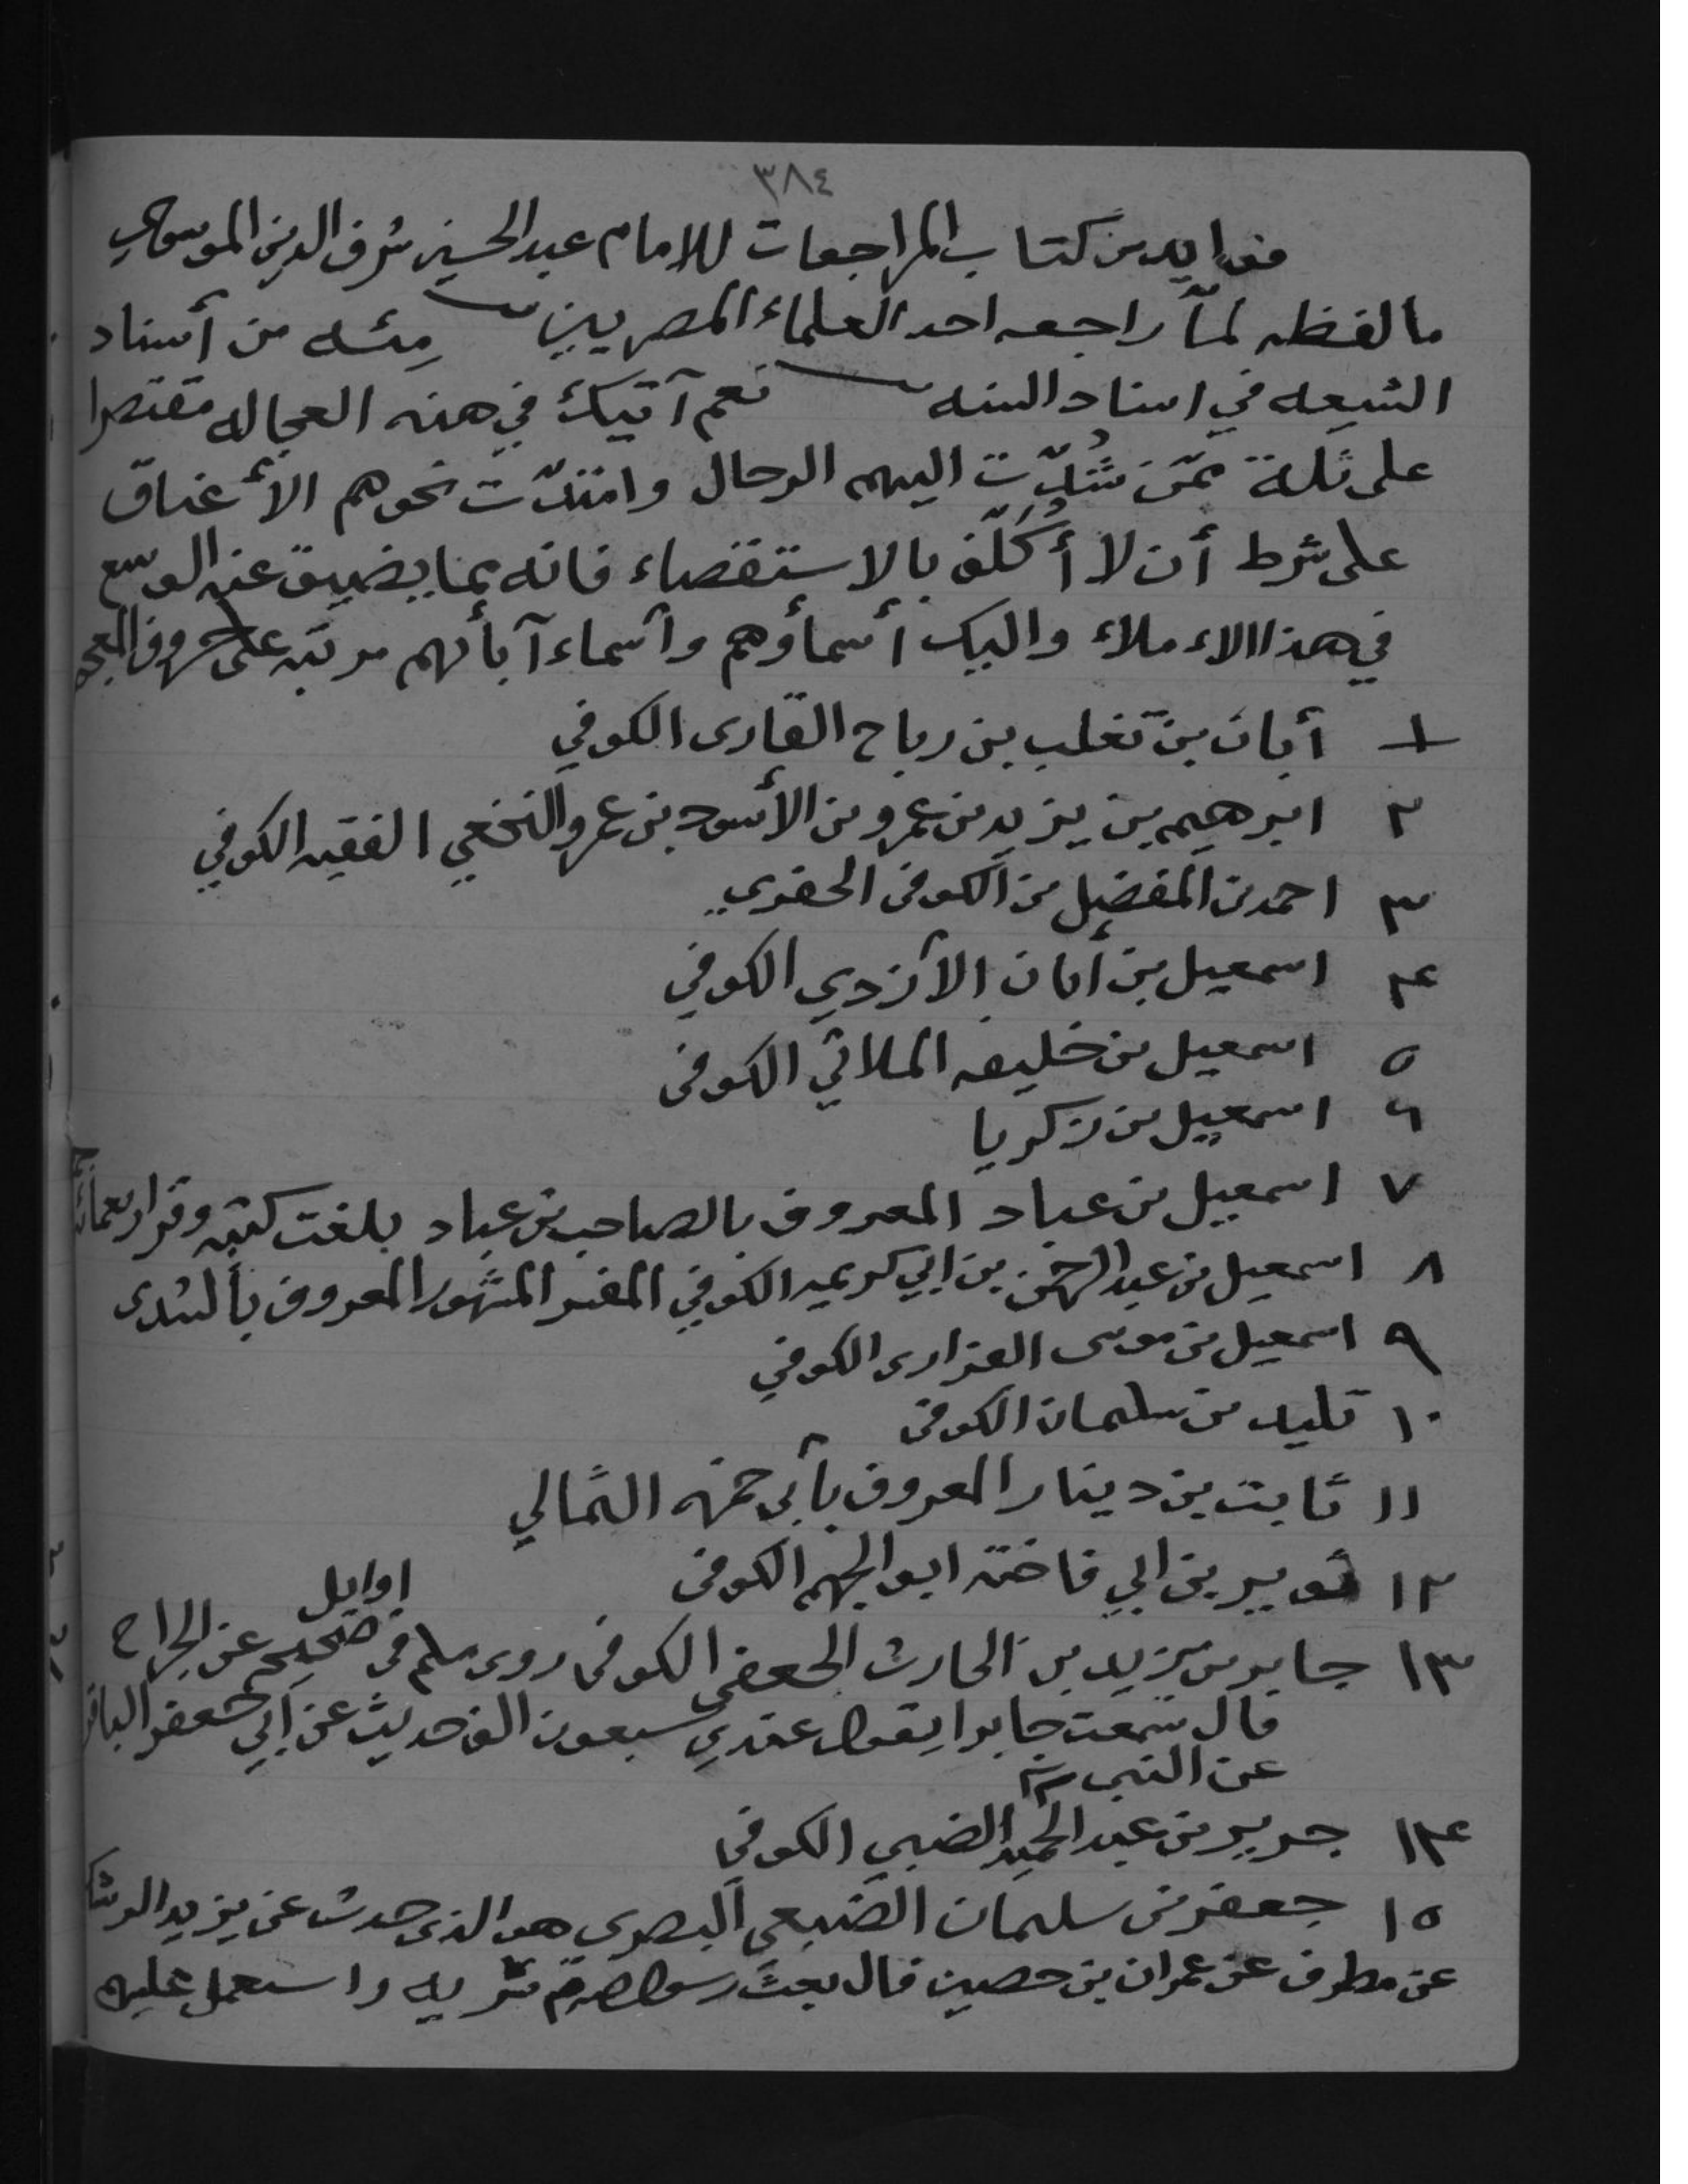 ٣٨٤
فوايد من كتاب المراجعات للامام عبد الحسين شرف الدين الموسوي
ما لفظه لمّا راجعه احد العلماء المصريين مئه من أسناد
الشيعه في اسناد السنه نعم آتيك في هذه العجاله مقتصرا
على ثلة ممّن شُدّت اليهم الرحال وامتدّت نحوهم الأعناق
على شرط أن لا أُكَلّف بالاستقصاء فانه مما يضيق عنه الوسع
في هذا الاملاء واليك أسماؤهم وأسماء آبأئهم مرتبه على حروف المعجم
١ أبان بن تغلب بن رباح القارى الكوفي
٢ ابرهيم بن يزيد بن عمرو بن الأسود بن عمرو النخعي الفقيه الكوفي
٣ احمد بن المفضل بن الكوفى الحفري
٤ اسمعيل بن أبان الأزدي الكوفي
٥ اسمعيل بن خليفه الملائي الكوفى
٦ اسمعيل بن زكريا
٧ اسمعيل بن عباد المعروف بالصاحب بن عباد بلغت كتبه وقر اربعمائة
٨ اسمعيل بن عبد الرحمن بن ابي كريمه الكوفي المفسر المشهور المعروف بالسدى
٩ اسمعيل بن موسى الفزارى الكوفي
١٠ تليد بن سليمان الكوفى
١١ ثابت بن دينار المعروف بأبى حمزه الثمالي
١٢ ثوير بن ابي فاخته ابو الجهم الكوفى
اوايل
١٣ جابر بن يزيد بن الحارث الجعفى الكوفى روى مسلم في صحيحه عن الجراح
قال سمعت جابرا يقول عندي سبعون الف حديث عن ابي جعفر الباقر
عن النبى
١٤ جرير بن عبد الحميد الضبي الكوفي
١٥ جعفر بن سليمان الضبعي البصري هو الذى حدث عن يزيد الرشك
عن مطرف عن عمران بن حصين قال بعث رسول سريه واستعمل عليهم